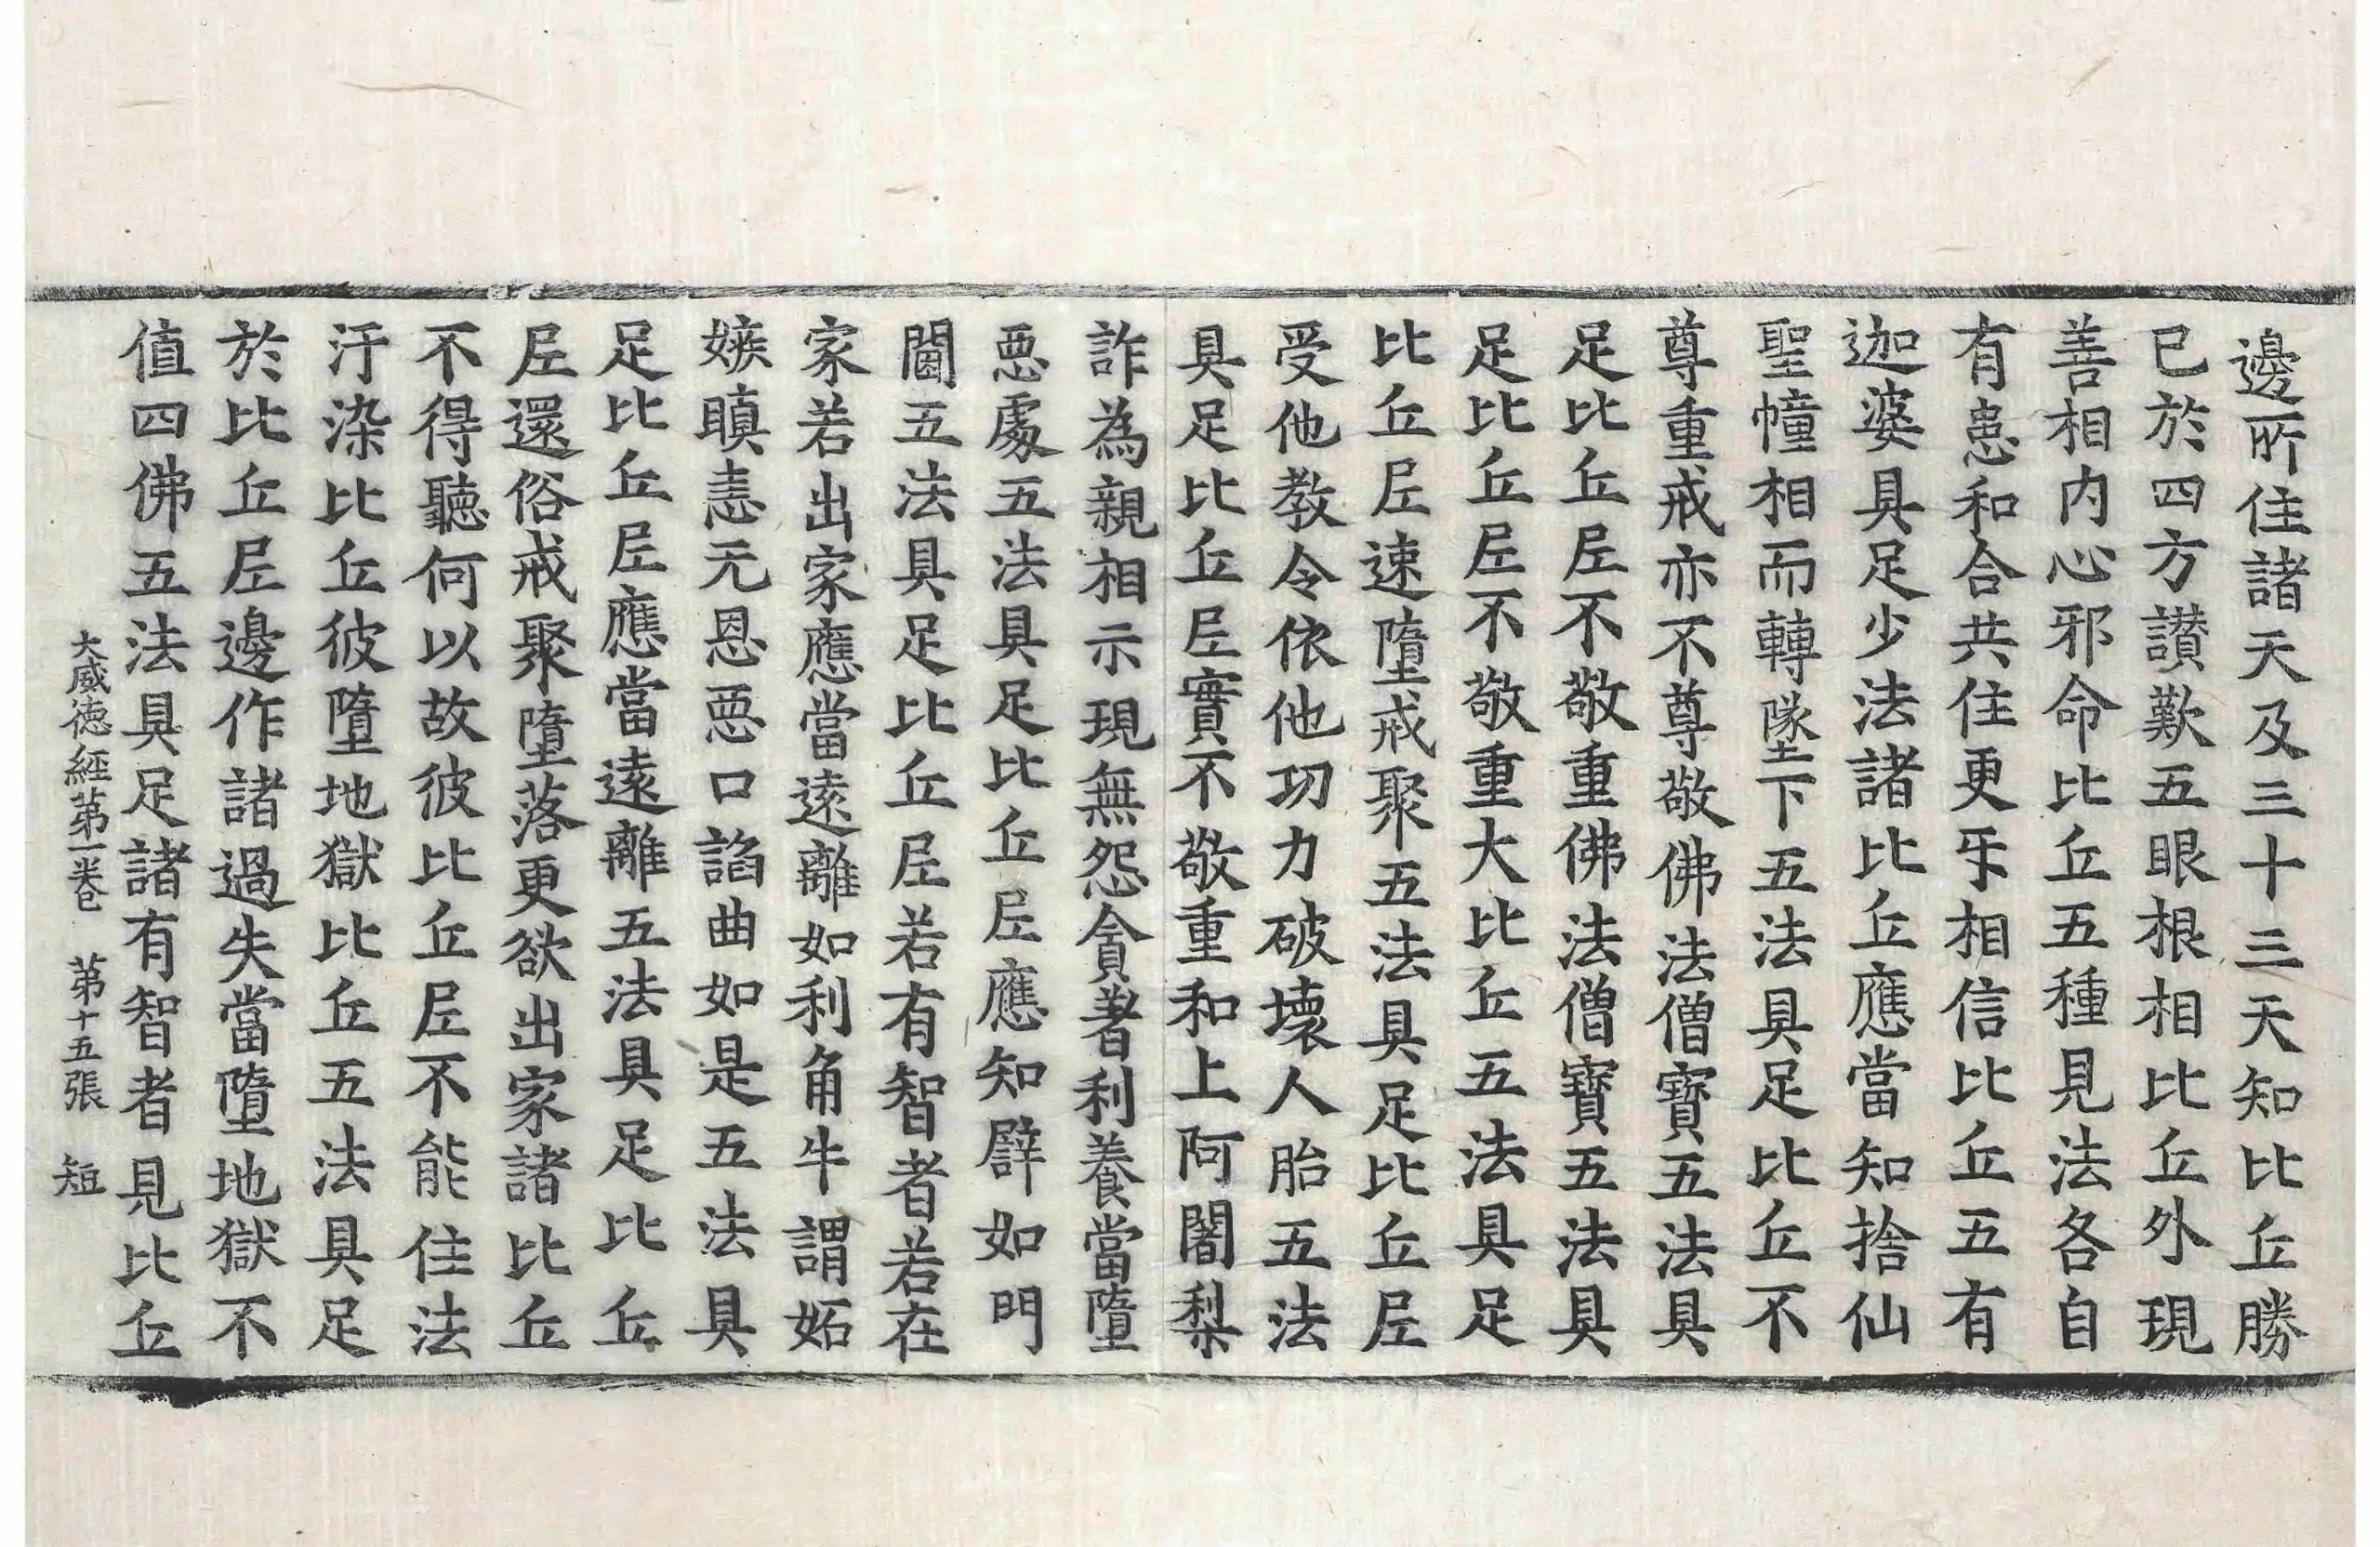 邊所住諸天及三十三天知比丘勝
已於四方讃歎五眼根相比丘外現
善相内心邪命比丘五種見法各自
有患和合共住更㸦相信比丘五有
迦婆具足少法諸比丘應當知捨仙
聖幢相而轉墜下五法具足比丘不
尊重戒亦不尊敬佛法僧寶五法具
足比丘𡰱不敬重佛法僧寶五法具
足比丘𡰱不敬重大比丘五法具足
比丘𡰱速墮戒聚五法具足比丘𡰱
受他教令依他功力破壞人胎五法
具足比丘𡰱實不敬重和上阿闍梨
詐為親相示現無怨貪著利養當墮
惡處五法具足比丘𡰱應知譬如門
閫五法具足比丘𡰱若有智者若在
家若出家應當遠離如利角牛謂妬
嫉瞋恚无恩惡口諂曲如是五法具
足比丘𡰱應當遠離五法具足比丘
𡰱還俗戒聚墮落更欲出家諸比丘
不得聽何以故彼比丘𡰱不能住法
汙染比丘彼墮地獄比丘五法具足
於比丘𡰱邊作諸過失當墮地獄不
值四佛五法具足諸有智者見比丘
大威徳経第一卷　第十五張　短